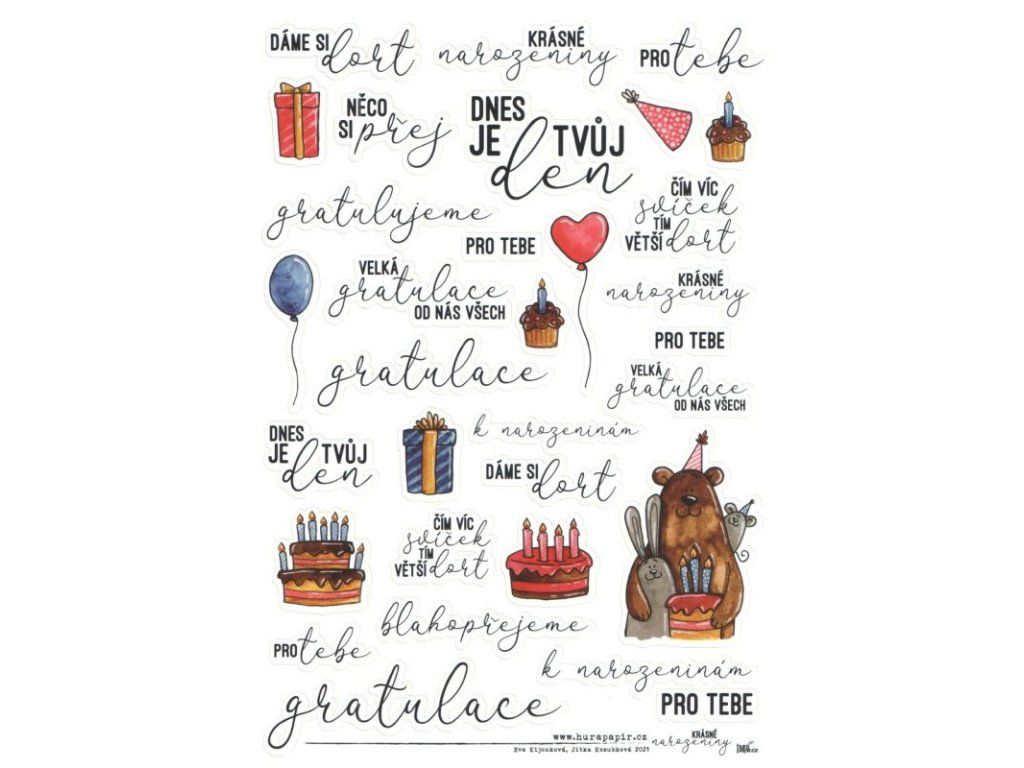 DÁME SI dort
KRÁSNÉ
narozeniny
PRO tebe
NĚCO
SI přej
DNES
JE TVŮJ
den
gratulujeme
ČÍM VÍC
svíček
TÍM
VĚTŠÍ dort
PRO TEBE
VELKÁ
gratulace
OD NÁS VŠECH
KRÁSNÉ
narozeniny
PRO TEBE
gratulace
VELKÁ
gratulace
OD NÁS VŠECH
DNES
JE TVŮJ
den
k narozeninám
DÁME SI dort
ČÍM VÍC
svíček
TÍM
VĚTŠÍ dort
blahopřejeme
PRO tebe
k narozeninám
gratulace
PRO TEBE
www.hurapapir.cz
Eva Kijonková, Jitka Kozubková 2023
KRÁSNÉ
narozeniny